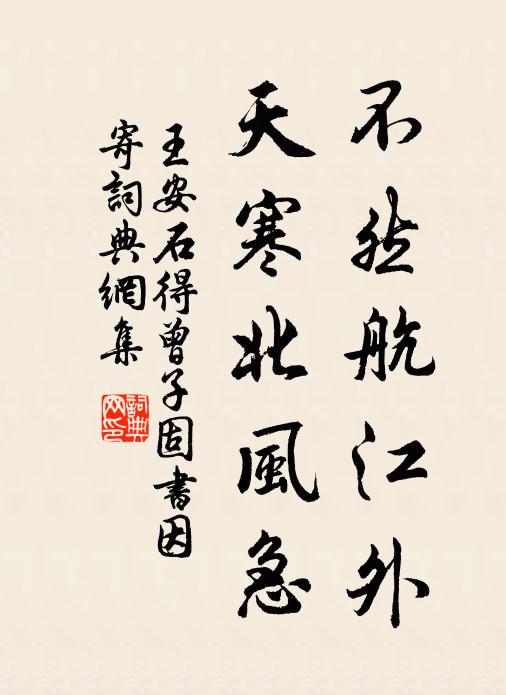 不然航江外
天寒北風急
王安石得曾子固書因
寄詞典網集
詞典
网印